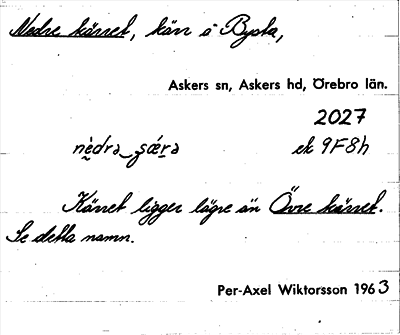 Nedre kärret, kärr å Bysta,
Askers sn, Askers hd, Örebro län.
2027
nèdrə ʂǽrə ek 9F8h
Kärret ligger lägre än Övre kärret.
Se detta namn.
Per-Axel Wiktorsson 1963